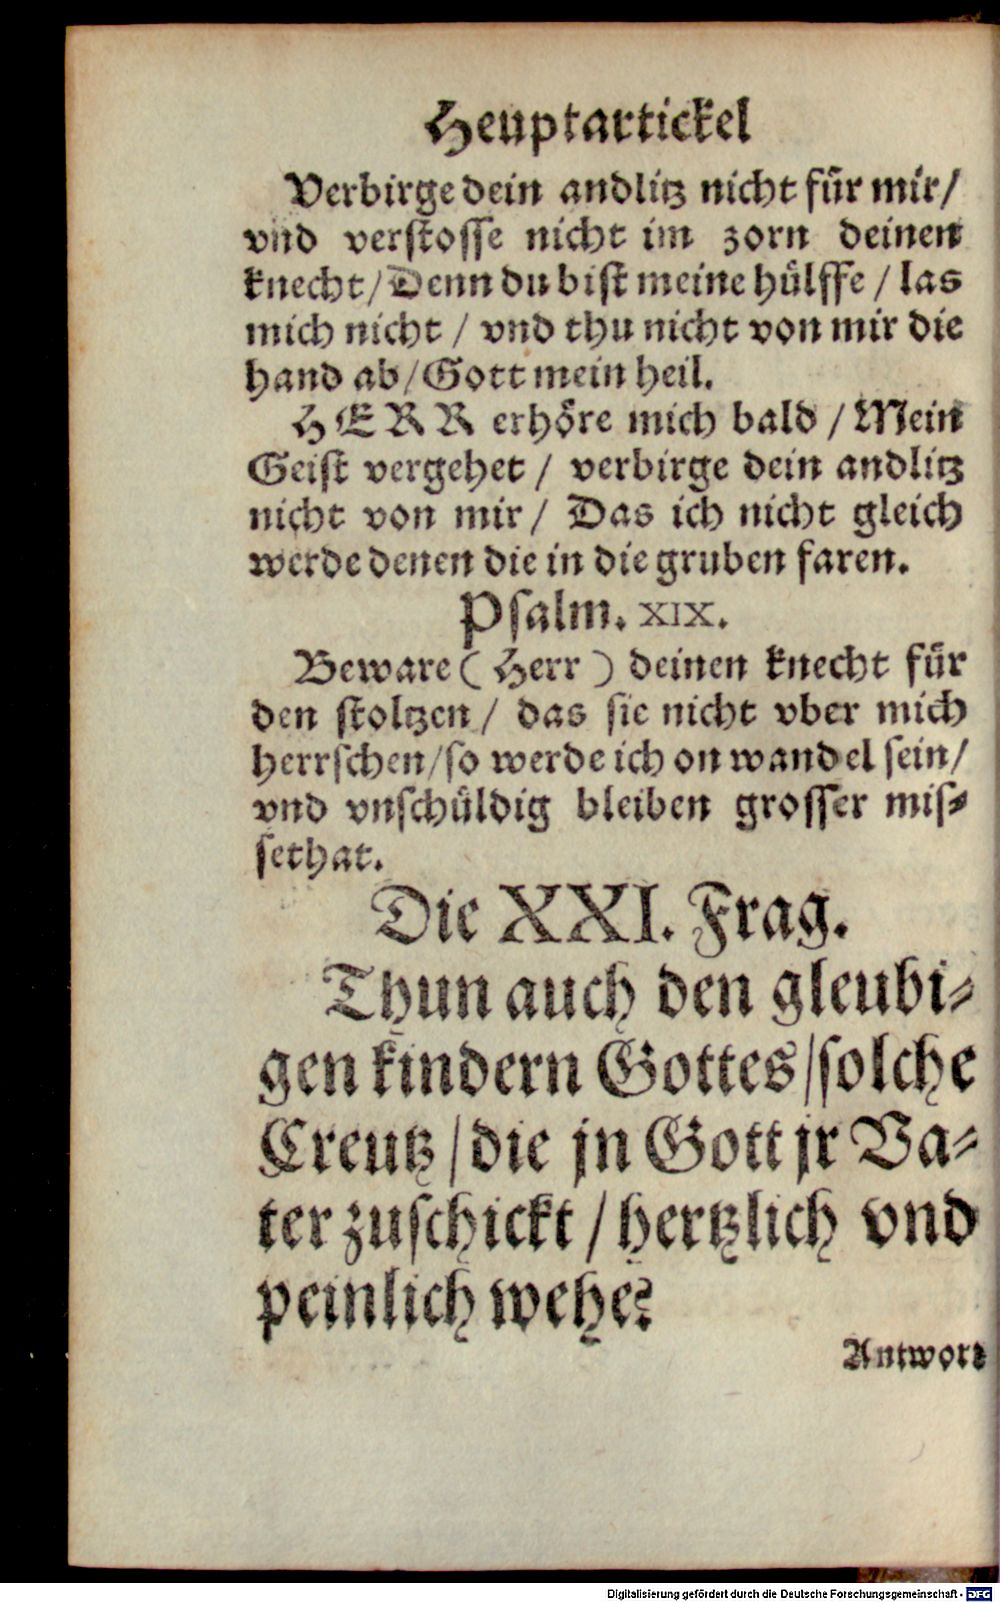 Heuptartickel
Verbirge dein andlitz nicht für mir/
vnd verstosse nicht im zorn deinen
knecht/Denn du bist meine hülffe / las
mich nicht / vnd thu nicht von mir die
hand ab/Gott mein heil.
HERR erhöre mich bald / Mein
Geist vergehet / verbirge dein andlitz
nicht von mir / Das ich nicht gleich
werde denen die in die gruben faren.
Psalm. XIX.
Beware ( Herr ) deinen knecht für
den stoltzen / das sie nicht vber mich
herrschen/so werde ich on wandel sein/
vnd vnschüldig bleiben grosser mis-
sethat.
Die XXI. Frag.
Thun auch den gleubi-
gen kindern Gottes/solche
Creutz/die jn Gott jr Va-
ter zuschickt / hertzlich vnd
peinlich wehe?
Antwort
Digitalisierung gefördert durch die Deutsche Forschungsgemeinschaft - DFG